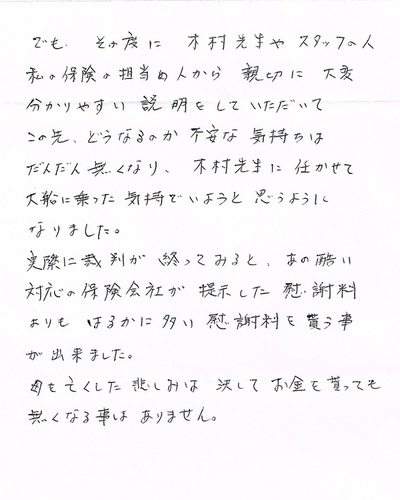 でも、その度に 木村先生や スタッフの人
私の保険の担当の人から 親切に 大変
分かりやすい 説明をしていただいて
この先、どうなるのか 不安な 気持ちは
だんだん 無くなり、 木村先生に 任かせて
大船に乗った 気持でいようと 思うように
なりました。
実際に裁判が 終ってみると、あの酷い
対応の保険会社が 提示した 慰謝料
よりも はるかに多い 慰謝料を 貰う事
が 出来ました。
母を亡くした 悲しみは 決して お金を貰っても
無くなる事は ありません。